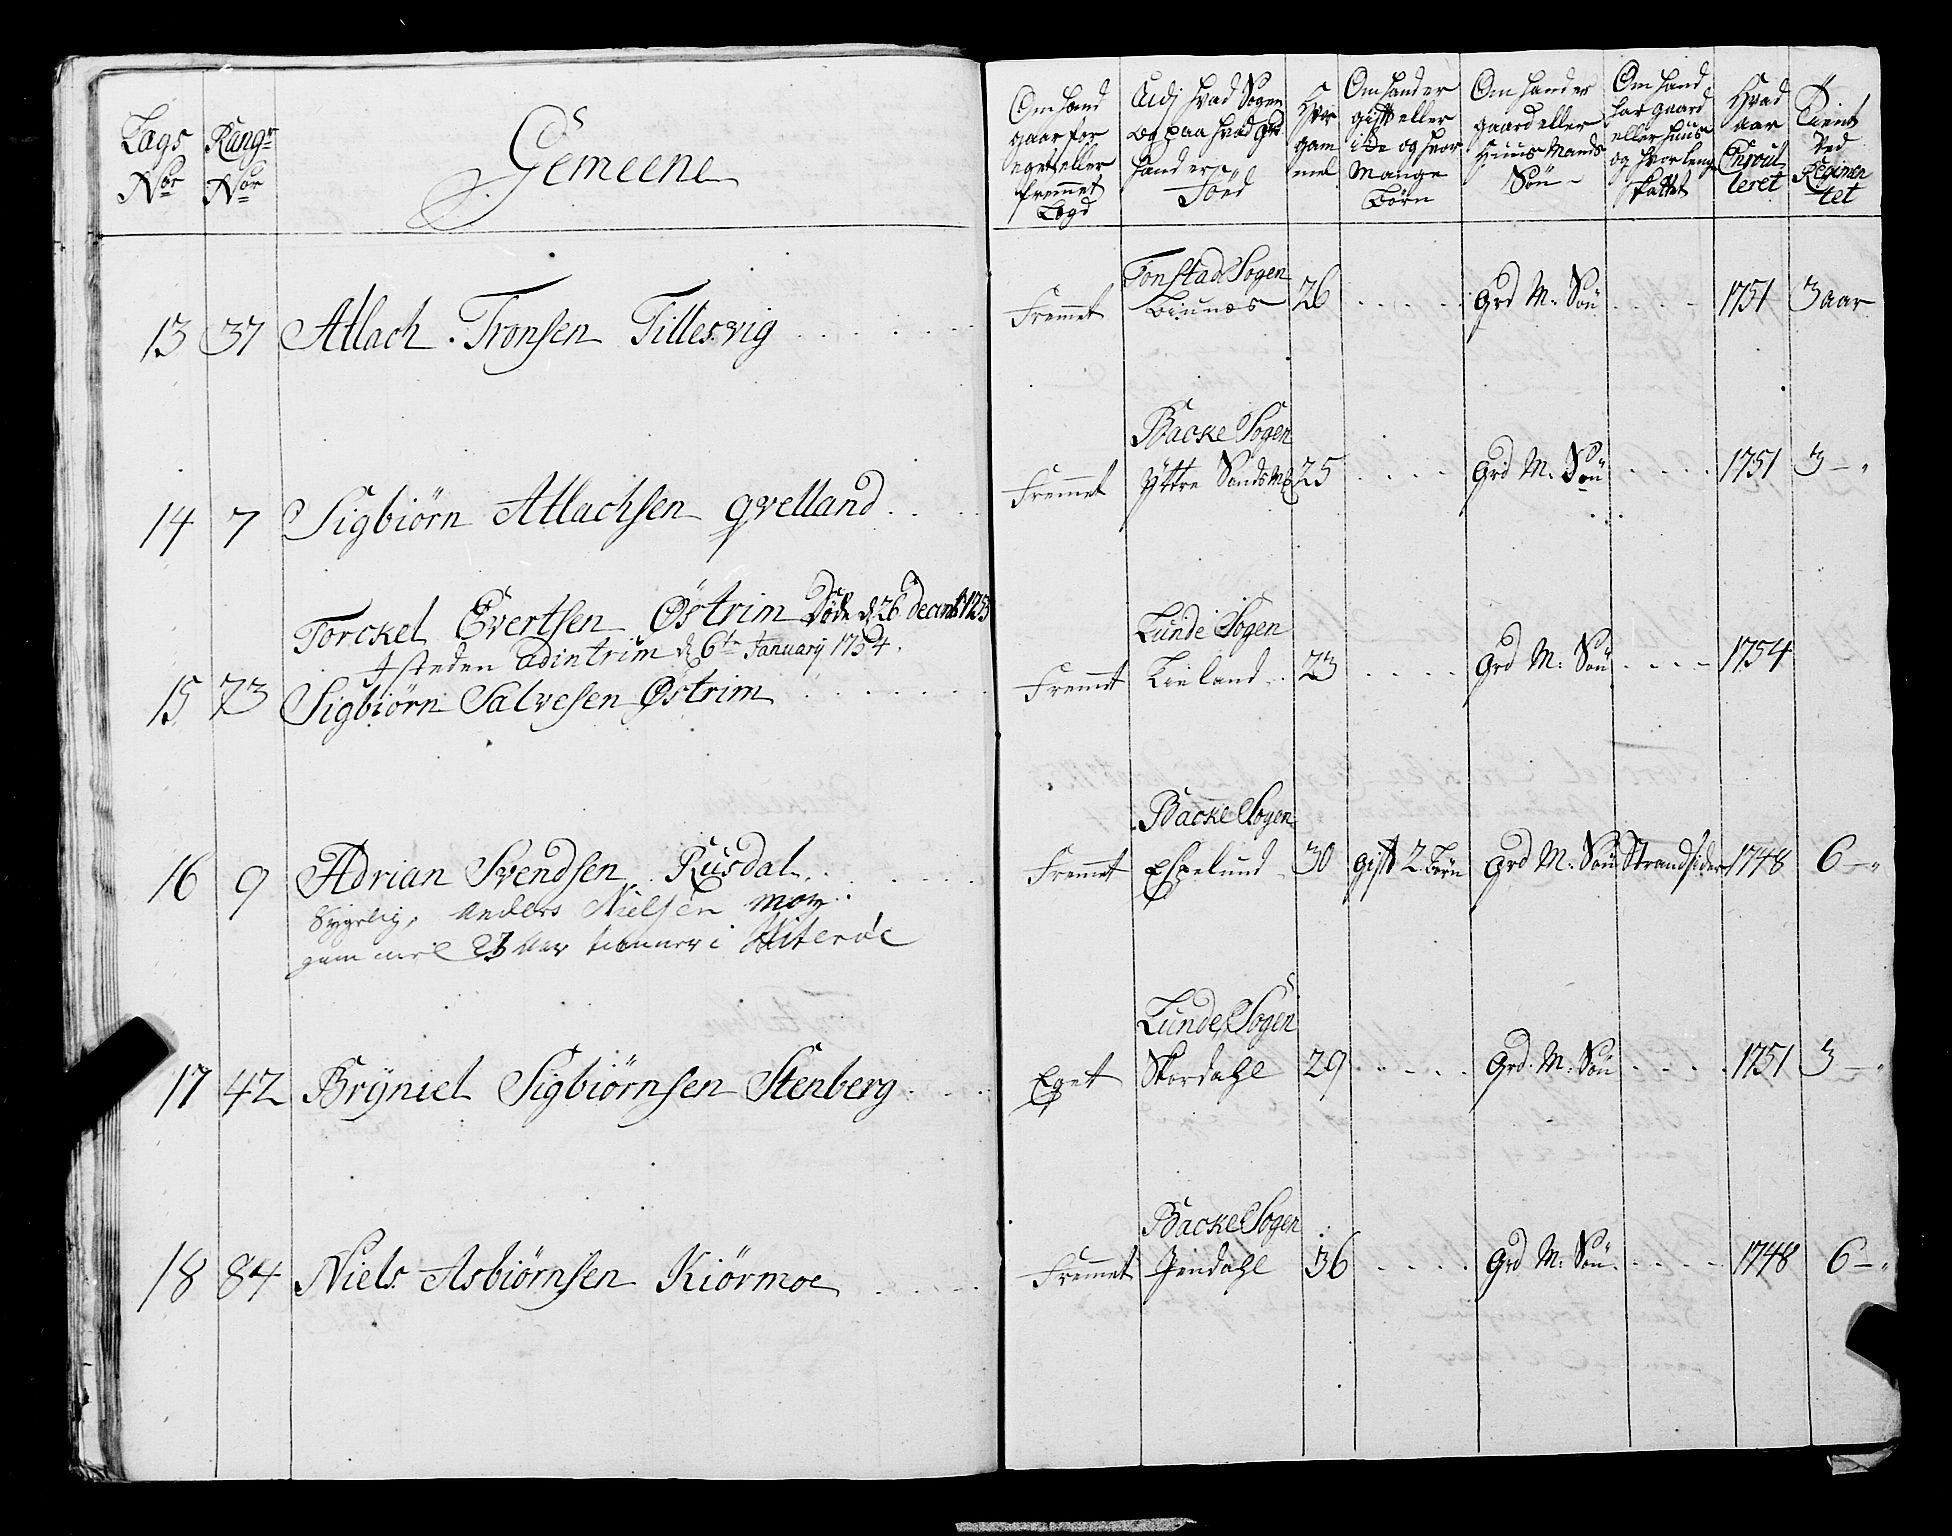 Lags
Nor
Rang
Nor
Gemeene
Om hand
gaar for
eget eller
fremmet
Lægd
Udj hvad Sogen
og paa hvad Grd
hand er
Föed
Hvor
gam
mel
Om hand er
gift eller
ike og hvor
Mange
Börn
Om hand er
gaard eller
Huus Mands
Sön
Om hand
har gaard
eller huus
og hvor leng
Hvad
aar
Enroul
leret
Tient
Ved
Regimen
tet
13 37 Atlach Tronsen Tillesvig
Fremmet Tonstad Sogen
Biunes 26 Grd M: Sön 1751 3 aar
14 7 Sigbiörn Atlachsen qvelland
Fremmet Backe Sogen
Ÿttre Sands M 25 Grd M: Sön 1751 3 —"
Torckel Evertsen Östrim Döde d 26 Decemb 1753
I steden adintrim d 6te January 1754.
15 73 Sigbiörn Salvesen Östrim
Fremmet Lunde Sogen
Lieland 23 Grd M: Sön 1754
16 9 Adrian Svendsen Rusdal
Sÿgelig, Anders Nielsen moy
gammel 23 Aar kommer i Hiterøe
Fremmet Backe Sogen
Espelund 30 gift 2 Börn Grd M: Sön Strandsider 1748 6 —"
17 42 Brÿniel Sigbiörnsen Stenberg
Eget Lunde Sogen
Skordahl 29 Grd: M: Sön 1751 3 —"
18 84 Niels Asbiörnsen Kiörmoe
Fremmet Backe Sogen
Jendahl 36 Grd M: Sön 1748 6 —"